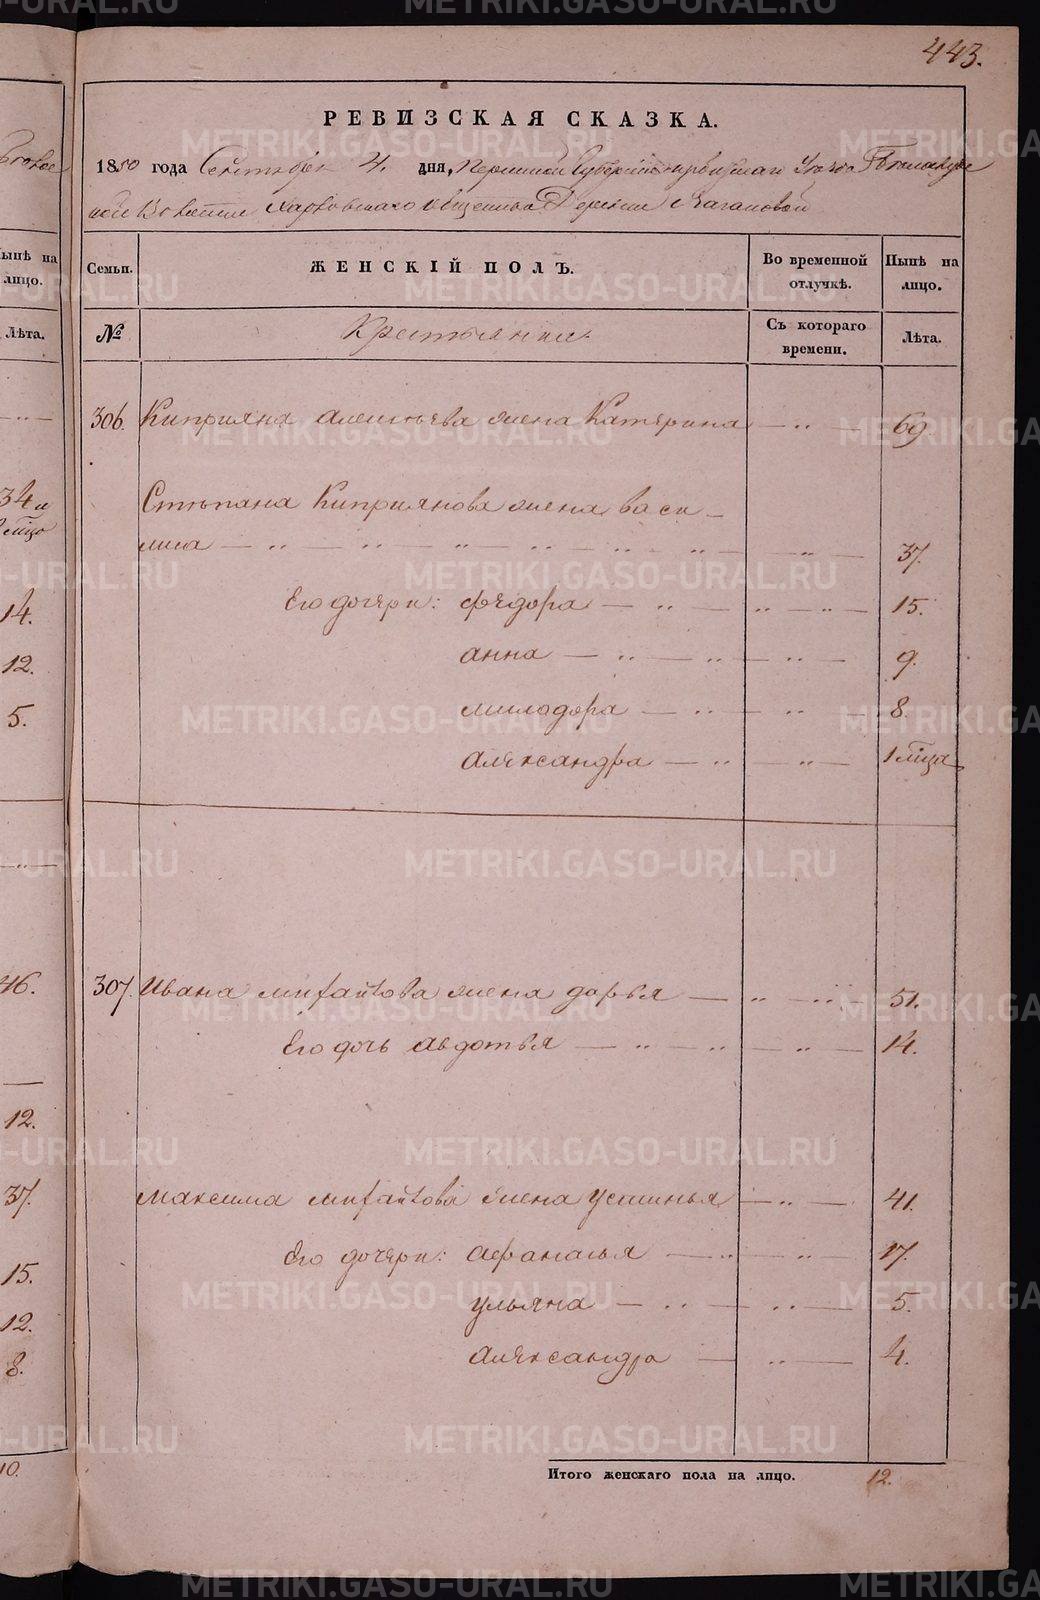 443.
РЕВИЗСКАЯ СКАЗКА.
1850 года Сентября 4. дня, Пермской Губернии Ирбитскаго Уезда
Волости Харловскаго общества Деревни
Семьи. ЖЕНСКІЙ ПОЛЪ. Во временной отлучкѣ. Нынѣ на лицо.
№ Крестьянки. Съ котораго времени. Лѣта.
306. Киприяна жена Катерина — " — 69
Стѣпана Киприянова жена васи
лиса — " — " — " — " — " — " — 37.
Его дочери: Федора — " — " — " — 15.
анна — " — " — " — 9.
милодора — " — " — 8.
Александра — " — " — 1 мѣца
307. Ивана михайлова жена дарья — " — " — 51.
Его дочь авдотья — " — " — " — 14.
Максима михайлова жена устинья — " — 41.
Его дочери: афанасья — " — " — 17.
ульяна — " — " — 5.
Александра — " — 4.
Итого женскаго пола на лицо. 12.
ынѣ на
лицо.
Лѣта.
34 и
мѣцо
14.
12.
5.
46.
12.
37.
15.
12.
8.
10.
METRIKI.GASO-URAL.RU